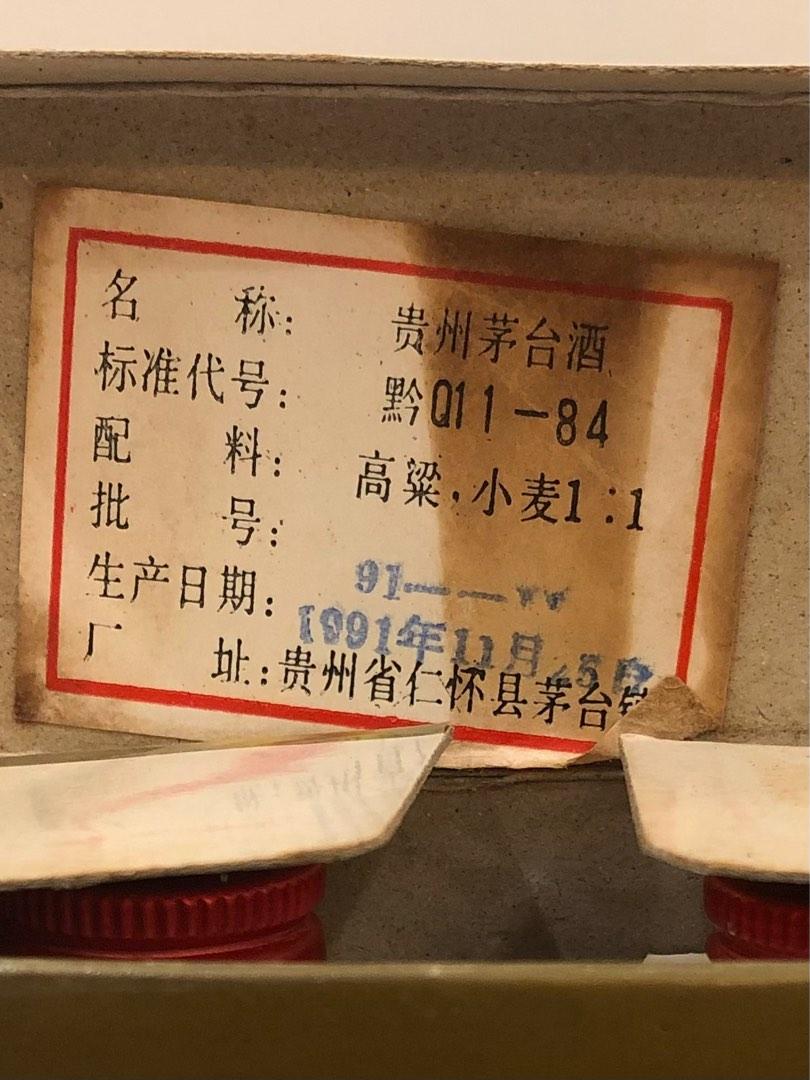 名 称: 贵州茅台酒
标准代号: 黔Q11-84
配 料: 高粱,小麦1:1
批 号: 91——
生产日期: 1991年11月25日
厂 址:贵州省仁怀县茅台镇